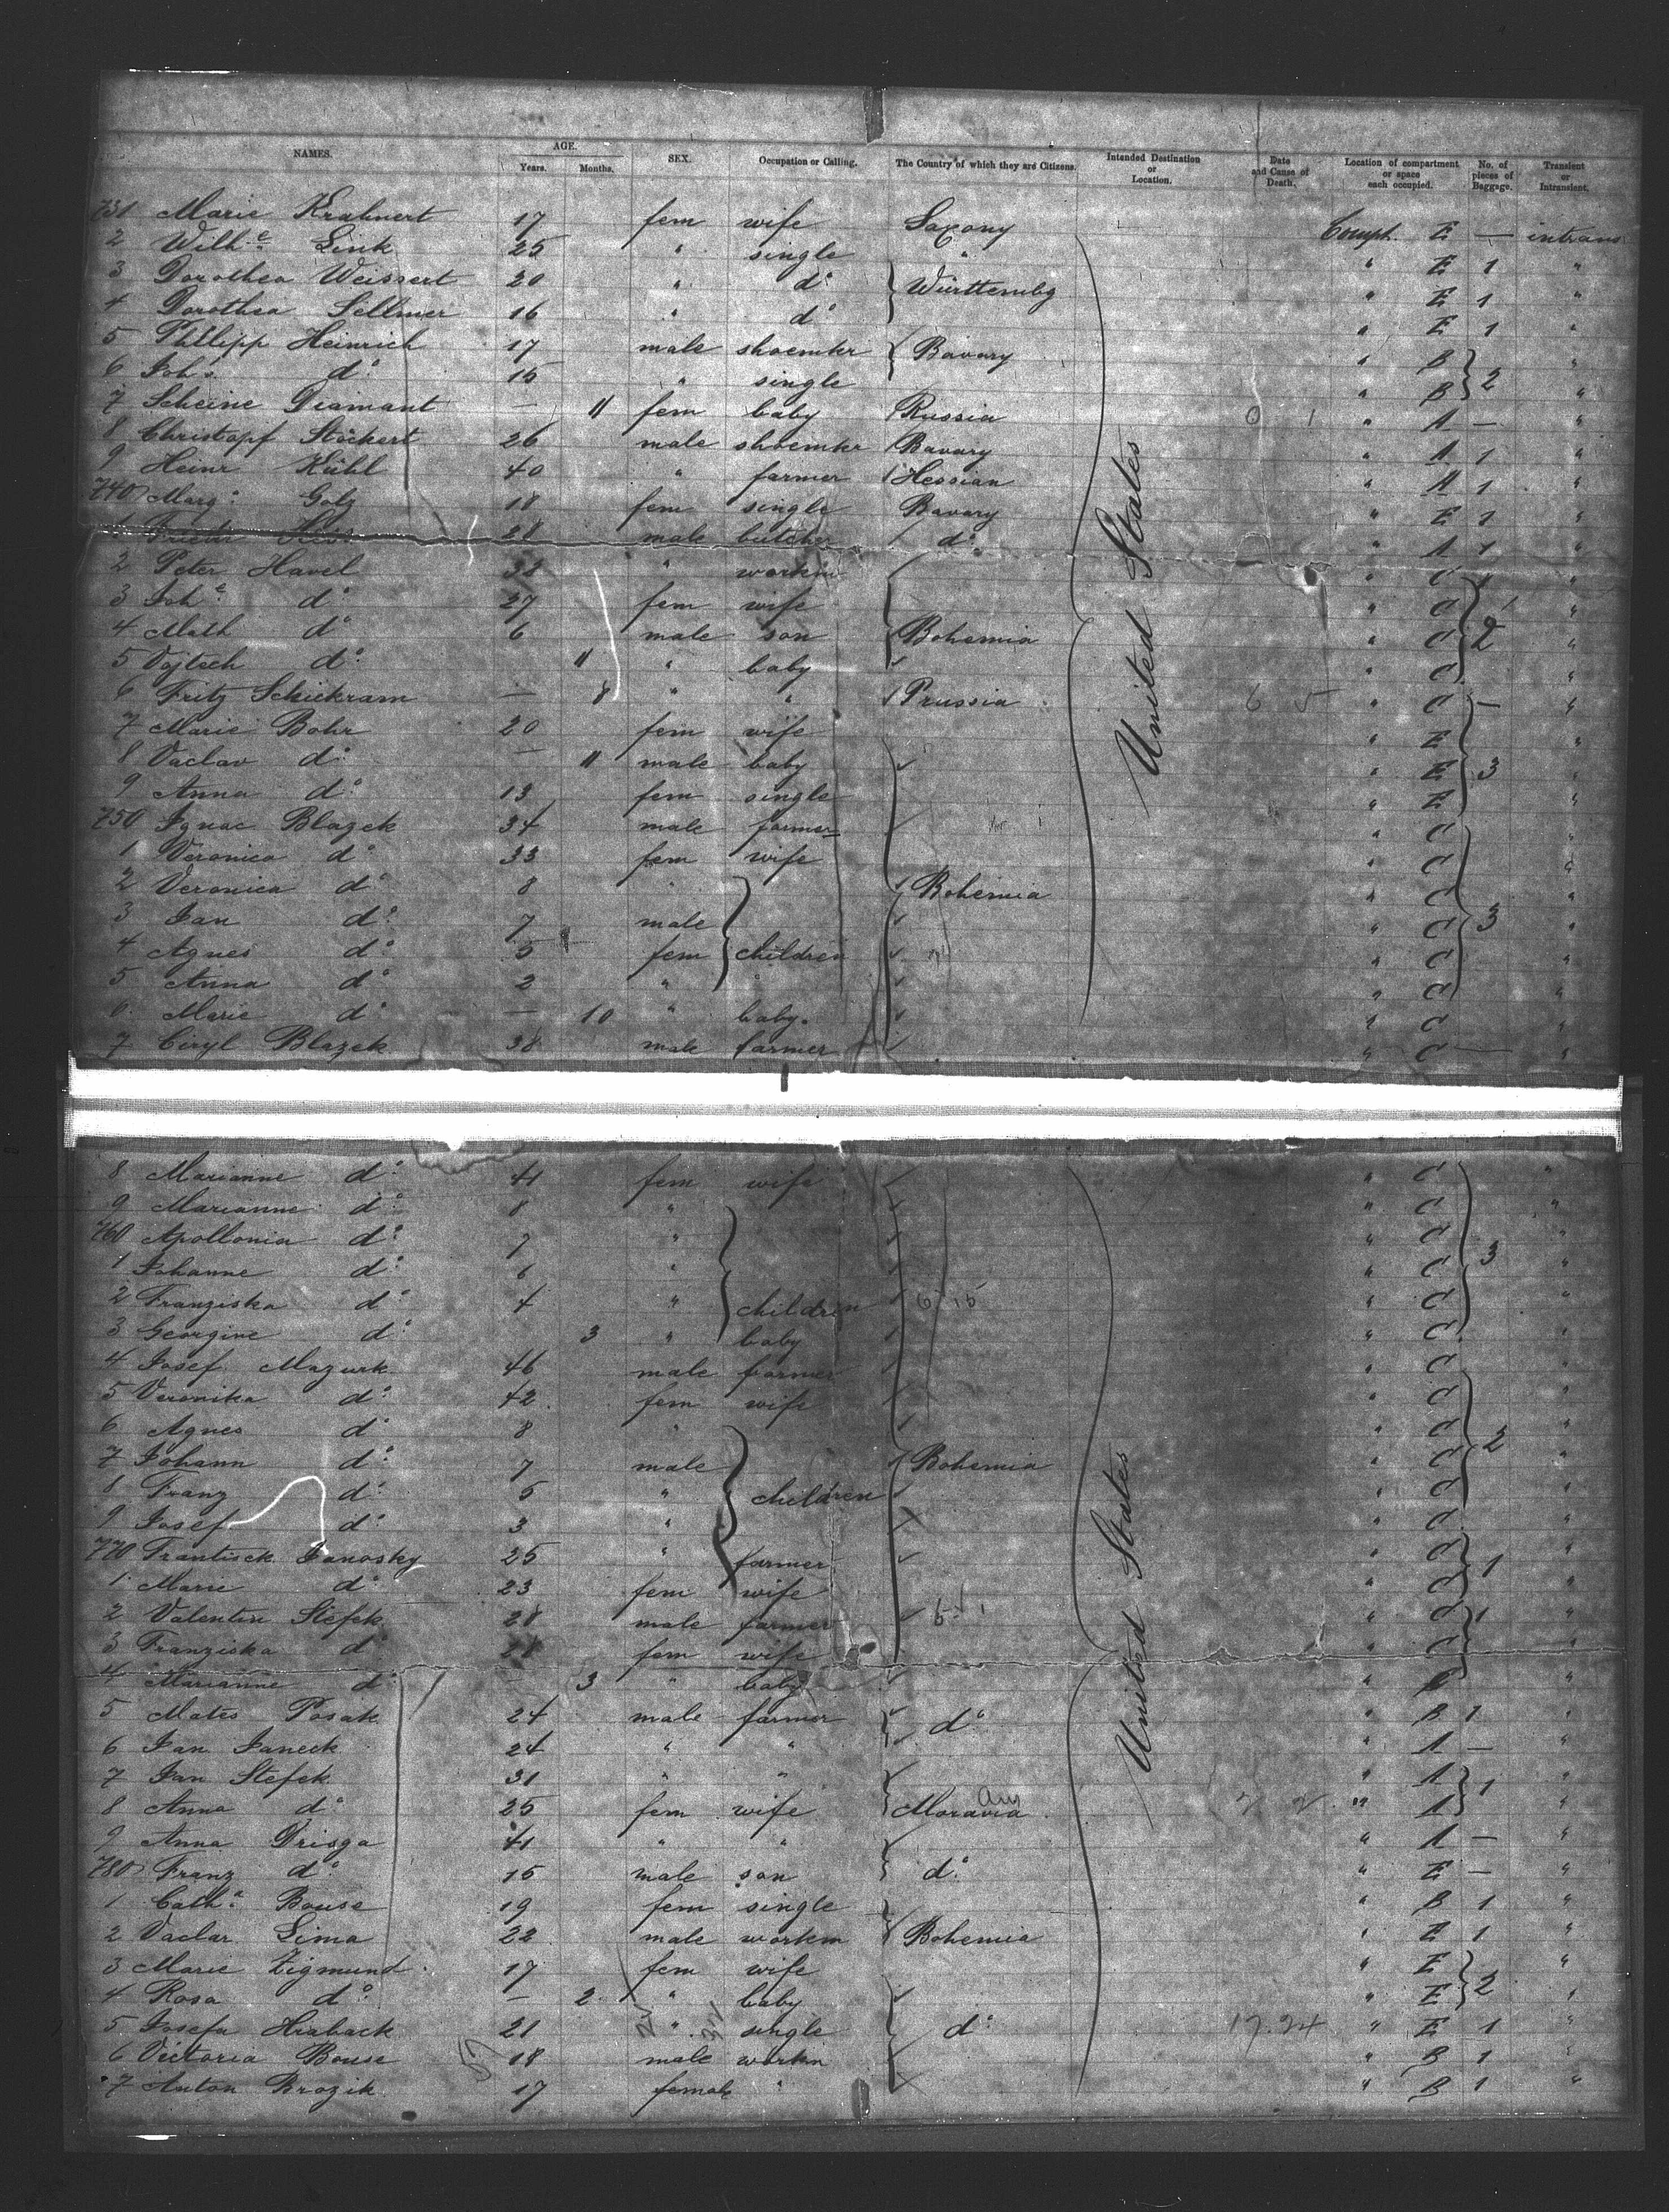 NAMES. AGE. SEX. Occupation or Calling. The Country of which they are Citizens. Intended Destination or Location. Date and Cause of Death. Location of compartment or space each occupied. No. of pieces of Baggage. Transient or Intransient.
Years. Months.
731 Marie Krahnert 17 fem wife Saxony Comph. E — intrans
2 Wilh.e Link 25 " single " " E 1 "
3 Dorothea Weissert 20 " do Württembg " E 1 "
4 Dorothea Sellmer 16 " do " E 1 "
5 Phillipp Heinrich 17 male shoemkr Bavary " B 2 "
6 Joh.s do 15 " single " B "
7 Scheine Diamant — 11 fem baby Russia " A — "
8 Christopf Stöckert 26 male shoemkr Bavary " A 1 "
9 Heinr Kühl 40 " farmer Hessian " A 1 "
740 Marg. Golz 18 fem single Bavary " E 1 "
1 Friedr Hess 28 male butcher do " A 1 "
2 Peter Havel 32 " workm " C "
3 Joh.e do 27 fem wife " C "
4 Math do 6 male son Bohemia " C 2 "
5 Vojtech do 11 " baby " C "
6 Fritz Schickram — 8 " " Prussia 6 5 " C — "
7 Marie Bohr 20 fem wife " E "
8 Vaclav do — 11 male baby " E 3 "
9 Anna do 13 fem single " E "
750 Ignac Blazek 34 male farmer " C "
1 Veronica do 33 fem wife " C "
2 Veronica do 8 " Bohemia " C "
3 Jan do 7 male " C 3 "
4 Agnes do 5 fem children " C "
5 Anna do 2 " " C "
6 Marie do — 10 " baby. " C "
7 Ciryl Blazek 38 male farmer " C — "
United States
8 Marianne do 41 fem wife " C "
9 Marianne do 8 " " C "
760 Apollonia do 7 " " C 3 "
1 Johanne do 6 " " C "
2 Franziska do 4 " children " C "
3 Georgine do 3 " baby " C "
4 Josef Mazurk 46 male farmer " C "
5 Veronika do 42 fem wife " C "
6 Agnes do 8 " " C 2 "
7 Johann do 7 male Bohemia " C "
8 Franz do 5 " children " C "
9 Josef do 3 " " C "
770 Frantisek Janosky 25 " farmer " C 1 "
1 Marie do 23 fem wife " C "
2 Valentin Stefek 28 male farmer " C 1 "
3 Franziska do 28 fem wife " C "
4 Marianne do — 3 " baby " C "
5 Mates Posak 24 male farmer do " B 1 "
6 Jan Janeck 24 " " " A — "
7 Jan Stefek 31 " " " A 1 "
8 Anna do 25 fem wife Moravia " A "
9 Anna Drisga 41 " " " A — "
780 Franz do 15 male son do " E — "
1 Cath.a Bouse 19 fem single " B 1 "
2 Vaclav Sima 22 male workm Bohemia " E 1 "
3 Marie Zigmund 17 fem wife " E "
4 Rosa do — 2 " baby " E 2 "
5 Josefa Hraback 21 " single do 17.24 " E 1 "
6 Victoria Bouse 18 male workm " B 1 "
7 Anton Brozik 17 female " " B 1 "
United States